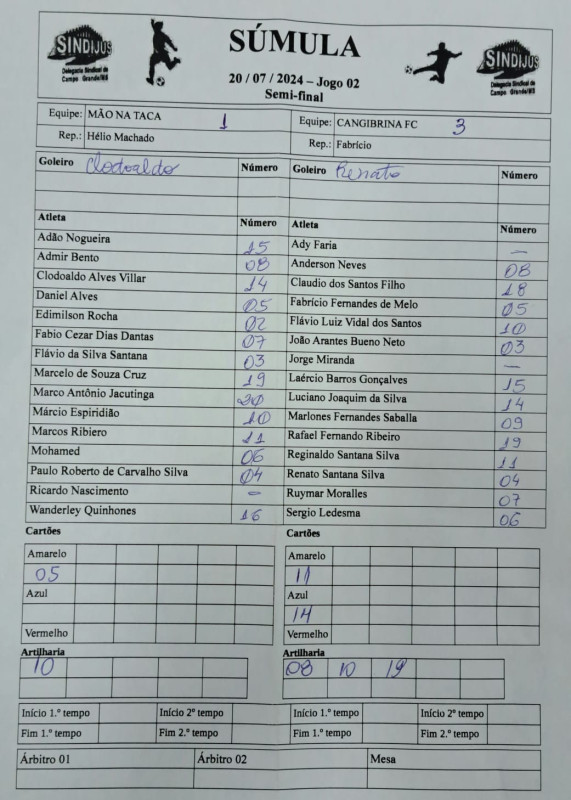 SINDIJUS
Delegacia Sindical de
Campo Grande/MS
SÚMULA
20 / 07 / 2024 – Jogo 02
Semi-final
SINDIJUS
Delegacia Sindical de
Campo Grande/MS
Equipe: MÃO NA TACA 1
Rep.: Hélio Machado
Equipe: CANGIBRINA FC 3
Rep.: Fabrício
Goleiro Clodoaldo Número
Goleiro Renato Número
Atleta Número
Adão Nogueira 15
Admir Bento 08
Clodoaldo Alves Villar 14
Daniel Alves 05
Edimilson Rocha 02
Fabio Cezar Dias Dantas 07
Flávio da Silva Santana 03
Marcelo de Souza Cruz 19
Marco Antônio Jacutinga 20
Márcio Espiridião 10
Marcos Ribiero 11
Mohamed 06
Paulo Roberto de Carvalho Silva 04
Ricardo Nascimento –
Wanderley Quinhones 16
Atleta Número
Ady Faria —
Anderson Neves 08
Claudio dos Santos Filho 18
Fabrício Fernandes de Melo 05
Flávio Luiz Vidal dos Santos 10
João Arantes Bueno Neto 03
Jorge Miranda —
Laércio Barros Gonçalves 15
Luciano Joaquim da Silva 14
Marlones Fernandes Saballa 09
Rafael Fernando Ribeiro 19
Reginaldo Santana Silva 11
Renato Santana Silva 04
Ruymar Moralles 07
Sergio Ledesma 06
Cartões
Amarelo
05
Azul
Vermelho
Artilharia
10
Cartões
Amarelo
11
Azul
14
Vermelho
Artilharia
08 10 19
Início 1.º tempo Início 2º tempo
Fim 1.º tempo Fim 2.º tempo
Início 1.º tempo Início 2º tempo
Fim 1.º tempo Fim 2.º tempo
Árbitro 01 Árbitro 02 Mesa